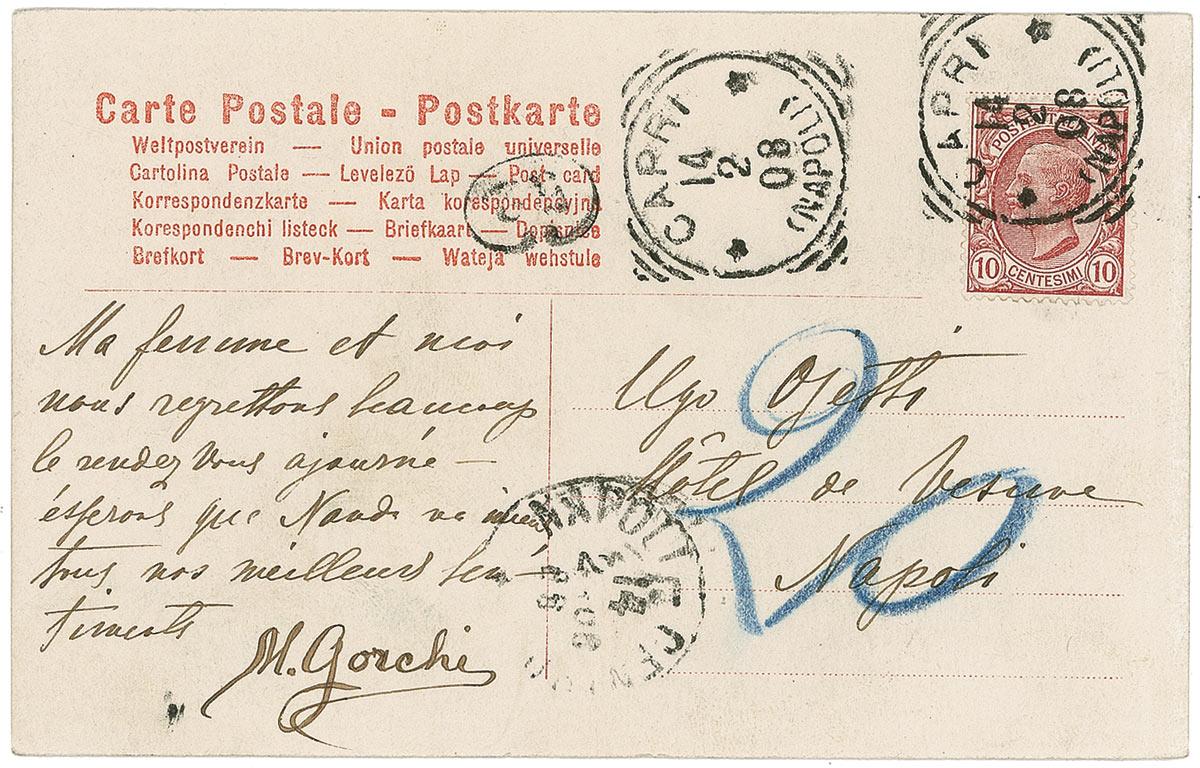 Carte Postale - Postkarte
Weltpostverein — Union postale universelle
Cartolina Postale — Levelező Lap — Post card
Korrespondenzkarte — Karta korespondencyjna
Korespondenchi listeck — Briefkaart — Dopisnice
Brefkort — Brev-Kort — Wateja wehstule
CAPRI
14
2
08
(NAPOLI)
CAPRI
14
2
08
(NAPOLI)
POSTE ITALIANE
10 CENTESIMI 10
Ma femme et moi
nous regrettons beaucoup
le rendez vous ajourné —
ésperons que Nanda va mieux
tous nos meilleurs sen-
timents
M. Gorchi
Ugo Ojetti
Hôtel de Vesuve
Napoli
20
NAPOLI